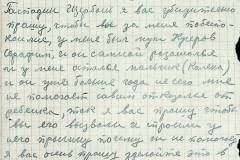 Господин Щербат я вас убедительно
прошу, чтобы вы за меня побеспо-
коились, у меня был муж Нуеров
Серафим, и он самой
и у меня остался мальчик (Колька)
и он уже больше года не его мне
не помогает совсем отказался от
ребенка, так я вас прошу чтобы
вы его вызвали и спросили у
него причину почему он не помогает
я вас очень прошу уделите это в